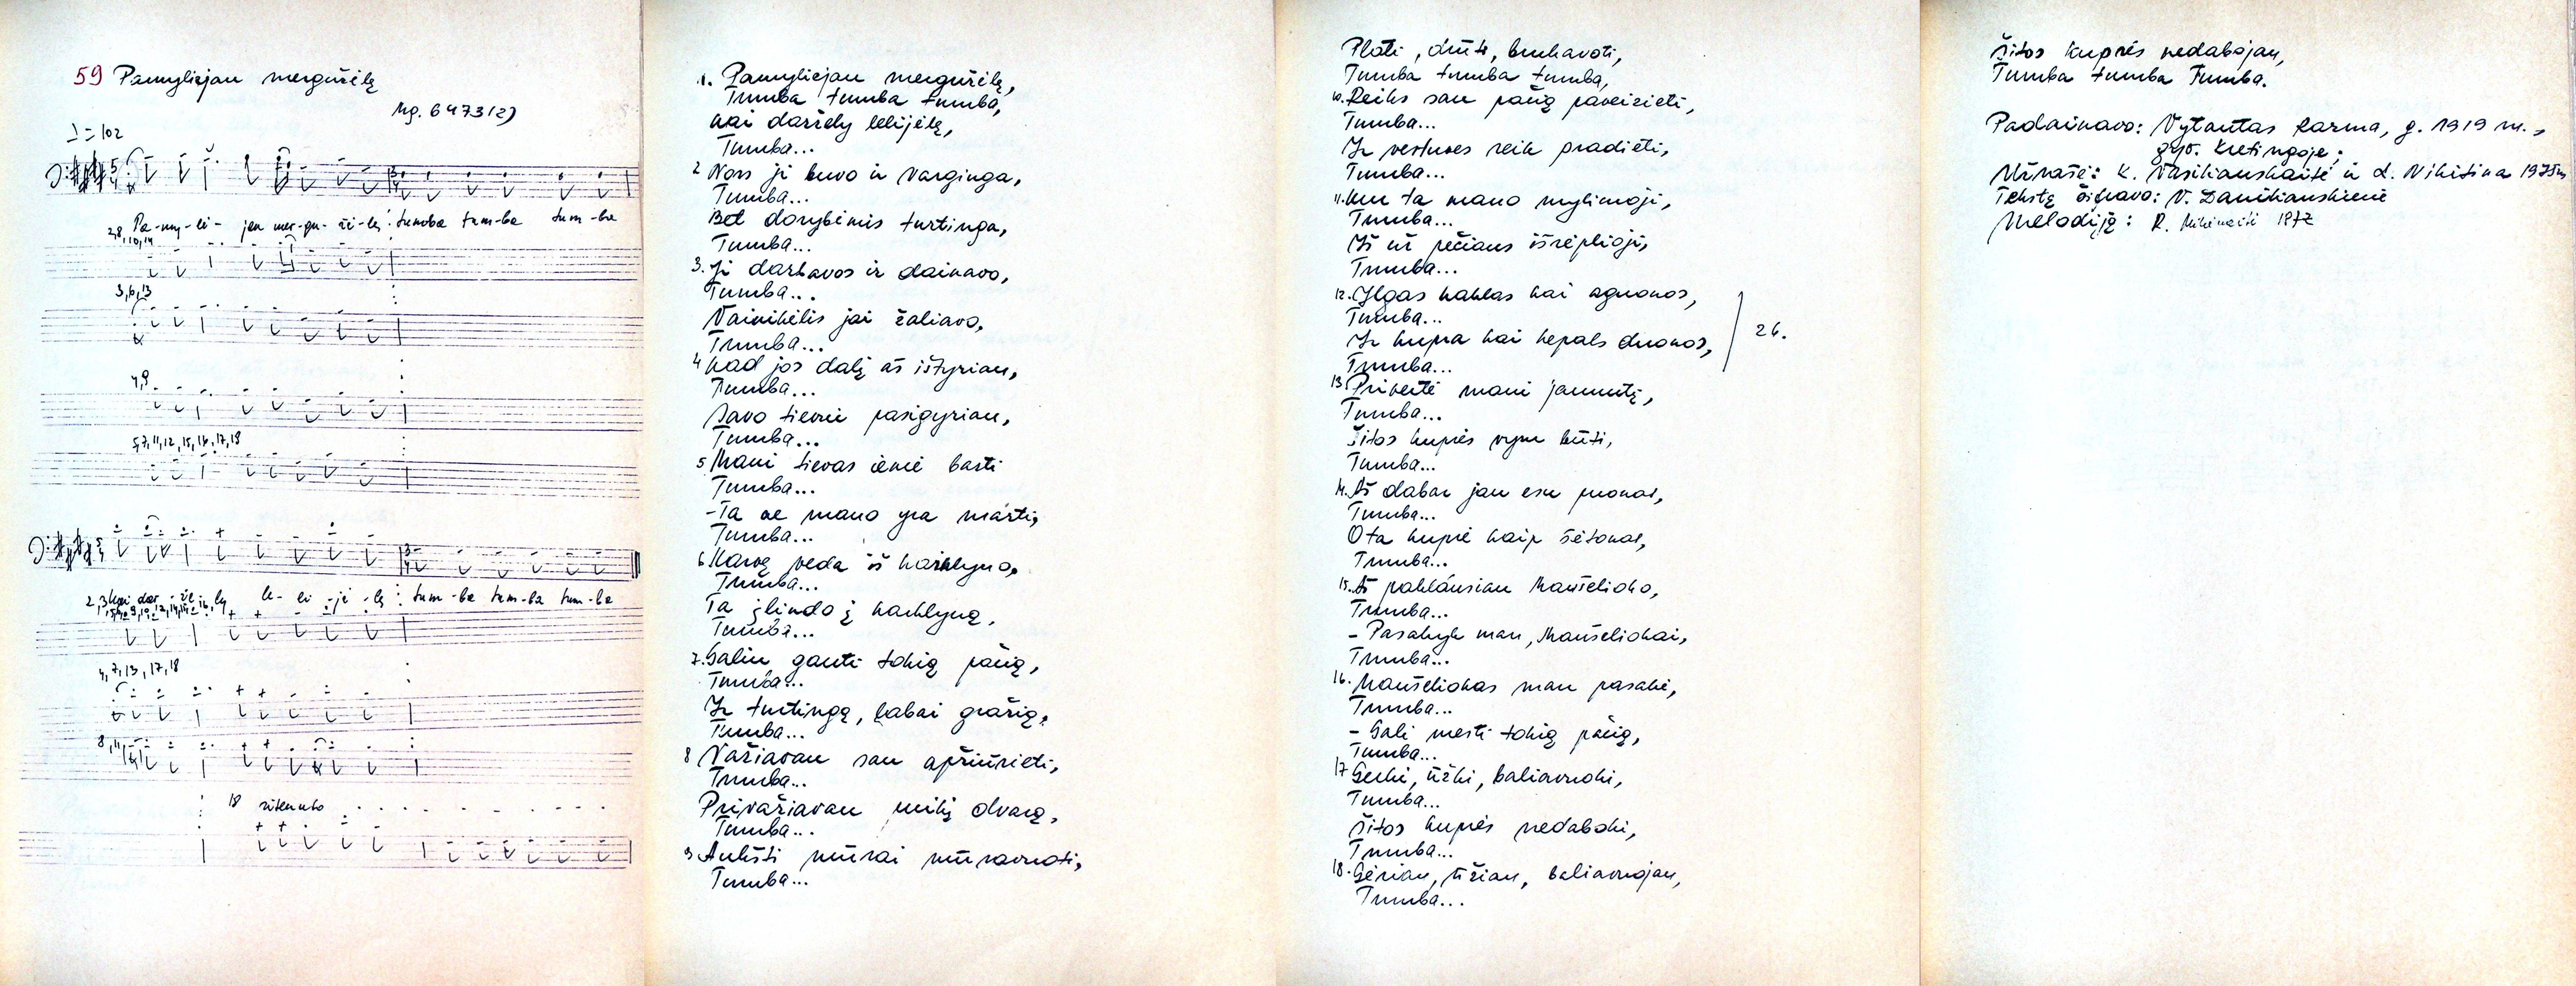 59 Pamyliejau mergužėlę
Mg. 6473(2)
♩=102
Pa-my-lė- jau mer-gu- žė-lę: tumba tum-ba tum-ba
2,8,10,14
3,6,13
4,9
5,7,11,12,15,16,17,18
kai dar-že-ly le- li-jė-lę: tum-ba tum-ba tum-ba
4,7,13,17,18
8,11
18 ritenuto
1. Pamyliejau mergužėlę,
Tumba tumba tumba,
Kai daržely lelijėlę,
Tumba...
2 Nors ji buvo ir varginga,
Tumba...
Bet dorybėmis turtinga,
Tumba...
3. Ji darbavos ir dainavo,
Tumba...
Vainikėlis jai žaliavo,
Tumba...
4 Kad jos dalį aš ištyriau,
Tumba...
Savo tievui pasigyriau,
Tumba...
5 Mani tievas iemė barti
Tumba...
-Ta ne mano yra marti,
Tumba...
6 Karvę veda iš
Tumba...
Ta įlindo į
Tumba...
7. Galiu gauti tokią pačią,
Tumba...
Ir turtingą, labai gražią,
Tumba...
8 Važiavau sau apžiūrieti,
Tumba...
Privažiavau puikį dvarą,
Tumba...
9 Aukšti mūrai mūravuoti,
Tumba...
Ploti, drūti, bukavoti,
Tumba tumba tumba,
10. Reiks sau pačią paveizieti,
Tumba...
Ir vestuves reik pradieti,
Tumba...
11. Kur ta mano mylimoji,
Tumba...
Iš už pečiaus išrėplioji,
Tumba...
12. Ilgas kaklas kai aguonos,
Tumba...
Ir kupra kai kepals duonos,
Tumba...
2k.
13 Privertė mani jaunutį,
Tumba...
Šitos kuprės vyru būti,
Tumba...
14. Aš dabar jau esu ponas,
Tumba...
O ta kuprė kaip šėtonas,
Tumba...
15. Aš pakláusiau Maušelioko,
Tumba...
- Pasakyk man, Maušeliokai,
Tumba...
16. Maušeliokas man pasakė,
Tumba...
- Gali mesti tokią pačią,
Tumba...
17 Gerki, ūžki, baliavuoki,
Tumba...
Šitos kuprės nedaboki,
Tumba...
18. Gėriau, ūžiau, baliavuojau,
Tumba...
Šitos kuprės nedabojau,
Tumba tumba Tumba.
Padainavo: Vytautas Razma, g. 1919 m.,
gyv. Kretingoje;
Užrašė: K. Vasiliauskaitė ir L. Nikitina 1975m
Tekstą šifravo: V. Daniliauskienė
Melodiją: R. Mikėnaitė 1977